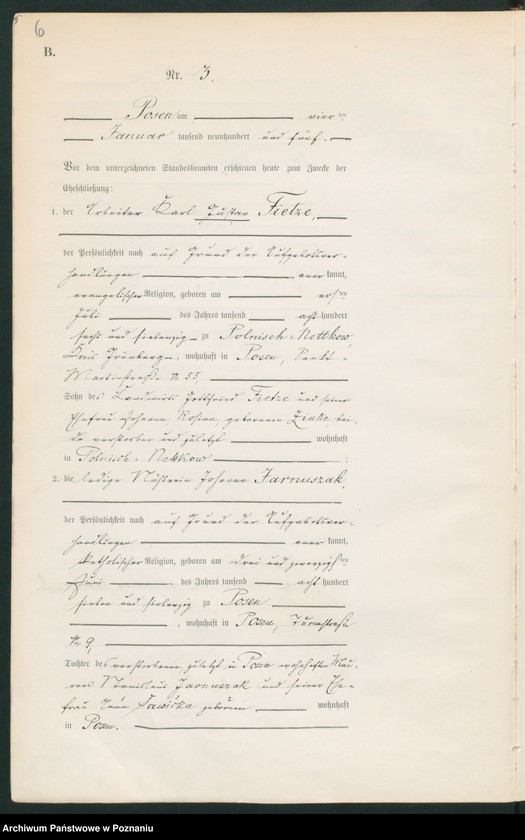 6
B.
Nr. 3.
Posen am vier ten
Januar tausend neunhundert und fünf.
Vor dem unterzeichneten Standesbeamten erschienen heute zum Zwecke der
Eheschließung:
1. der Arbeiter Karl Gustav Fietze,
der Persönlichkeit nach auf Grund der Aufgebotsver-
handlungen aner kannt,
evangelischer Religion, geboren am ersten
Juli des Jahres tausend acht hundert
sechs und siebenzig zu Polnisch-Nettkow,
Kreis Grünberg, wohnhaft in Posen, Sankt-
Martinstraße № 55,
Sohn des Landwirts Gottfried Fietze und seiner
Ehefrau Johanne Rosina, geborenen Zinke, bei-
de verstorben und zuletzt wohnhaft
in Polnisch-Nettkow;
2. die ledige Näherin Johanna Jarnuszak,
der Persönlichkeit nach auf Grund der Aufgebotsver-
handlungen aner kannt,
katholischer Religion, geboren am drei und zwanzigsten
Juni des Jahres tausend acht hundert
sieben und siebenzig zu Posen
, wohnhaft in Posen, Turmstraße
№ 9,
Tochter des verstorbenen zuletzt in Posen wohnhaften Mau-
rers Stanislaus Jarnuszak und seiner Ehe-
frau geborenen Sawicka wohnhaft
in Posen.
Archiwum Państwowe w Poznaniu